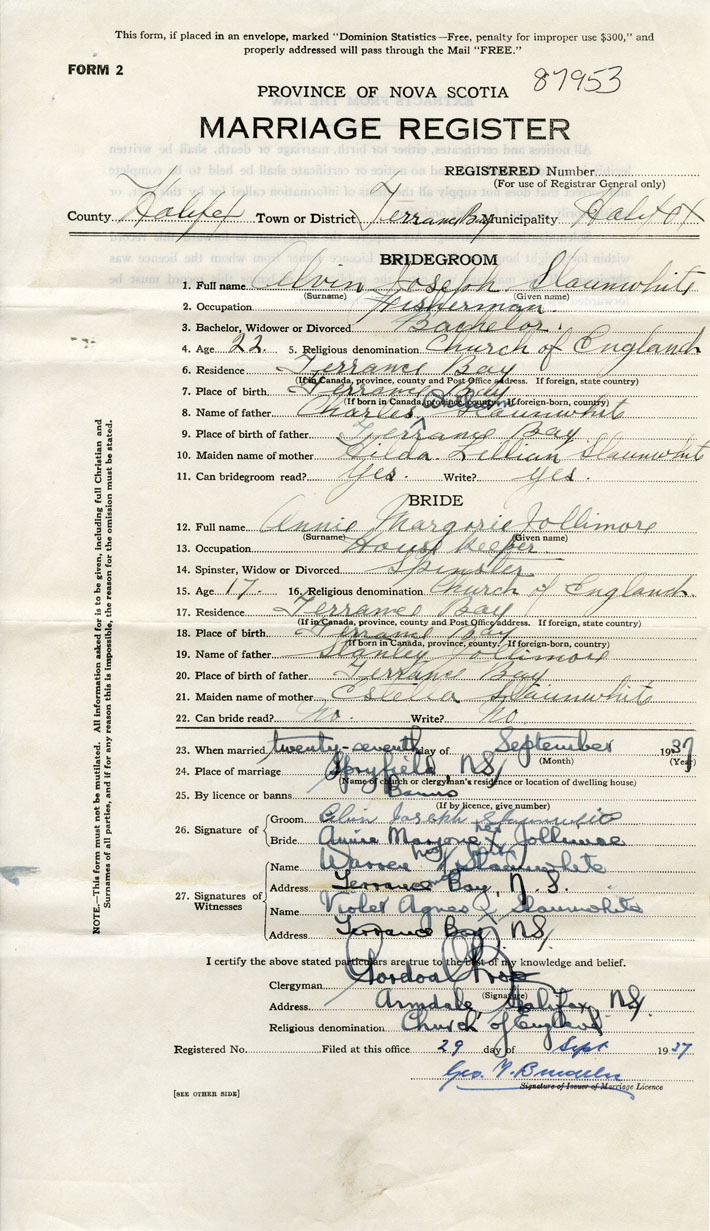 This form, if placed in an envelope, marked "Dominion Statistics—Free, penalty for improper use $300," and
properly addressed will pass through the Mail "FREE."
FORM 2
PROVINCE OF NOVA SCOTIA 87953
MARRIAGE REGISTER
REGISTERED Number
(For use of Registrar General only)
County Halifax Town or District Terrance Bay Municipality Halifax
BRIDEGROOM
1. Full name Alvin Joseph Slaunwhite
(Surname) (Given name)
2. Occupation Fisherman.
3. Bachelor, Widower or Divorced Bachelor.
4. Age 22 5. Religious denomination Church of England
6. Residence Terrance Bay
(If in Canada, province, county and Post Office address. If foreign, state country)
7. Place of birth Terrance Bay
(If born in Canada, province, county. If foreign-born, country)
8. Name of father Charles Slaunwhite
9. Place of birth of father Terrance Bay
10. Maiden name of mother Hilda Lillian Slaunwhite
11. Can bridegroom read? Yes. Write? yes.
BRIDE
12. Full name Annie Margorie Jollimore
(Surname) (Given name)
13. Occupation House keeper.
14. Spinster, Widow or Divorced Spinster
15. Age 17. 16. Religious denomination Church of England.
17. Residence Terrance Bay
(If in Canada, province, county and Post Office address. If foreign, state country)
18. Place of birth Terrance Bay
(If born in Canada, province, county. If foreign-born, country)
19. Name of father Stanley Jollimore
20. Place of birth of father Terrance Bay
21. Maiden name of mother Slaunwhite
22. Can bride read? No. Write? No.
23. When married twenty-seventh day of September 1937
(Month) (Year)
24. Place of marriage Spryfield, NS/
(Name of church or clergyman's residence or location of dwelling house)
25. By licence or banns Banns
(If by licence, give number)
26. Signature of
Groom Alvin Joseph Slaunwhite
Bride Annie Margorie X Jollimore
her
mark
27. Signatures of Witnesses
Name Warren Slaunwhite
Address Terrance Bay, N.S.
Name Violet Agnes Slaunwhite
Address Terrance Bay, NS/
I certify the above stated particulars are true to the best of my knowledge and belief.
Clergyman
(Signature)
Address Armdale, Halifax, NS/
Religious denomination Church of England
Registered No. Filed at this office 29 day of Sept 1937
Geo.
Signature of Issuer of Marriage Licence
[SEE OTHER SIDE]
NOTE.—This form must not be mutilated. All information asked for is to be given, including full Christian and
Surnames of all parties, and if for any reason this is impossible, the reason for the omission must be stated.